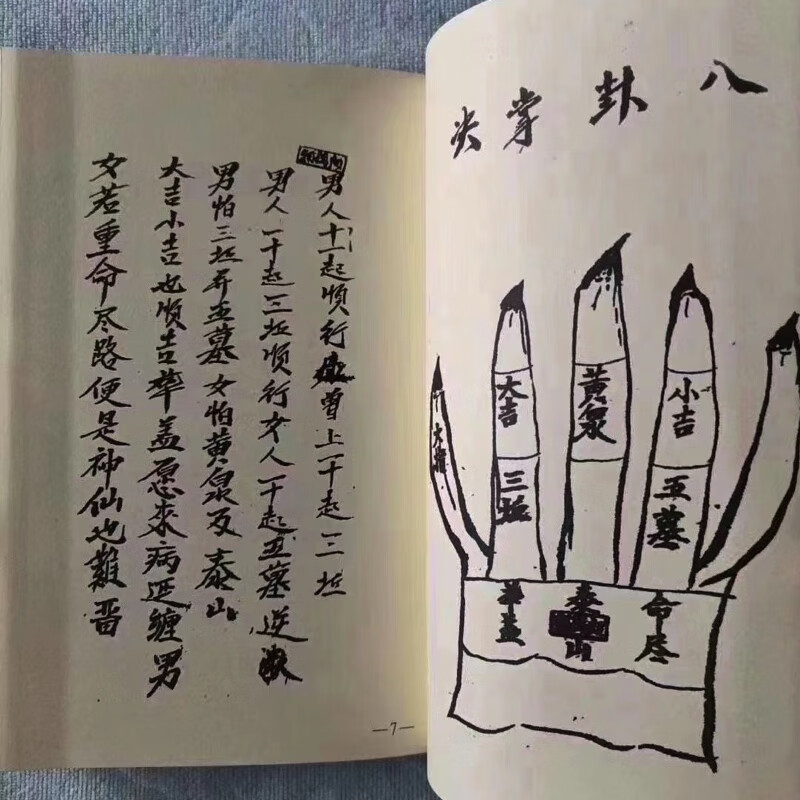 八卦掌
大吉
三坵
黄泉
小吉
五墓
華盖
泰山
命尽
男人十一起顺行曾上一十起三坵
男人一十起三坵顺行女人一十起五墓逆
男怕三坵并五墓女怕黄泉及泰山
大吉小吉也顺吉華盖愿来病延缠男
女若重命尽路便是神仙也難
—7—